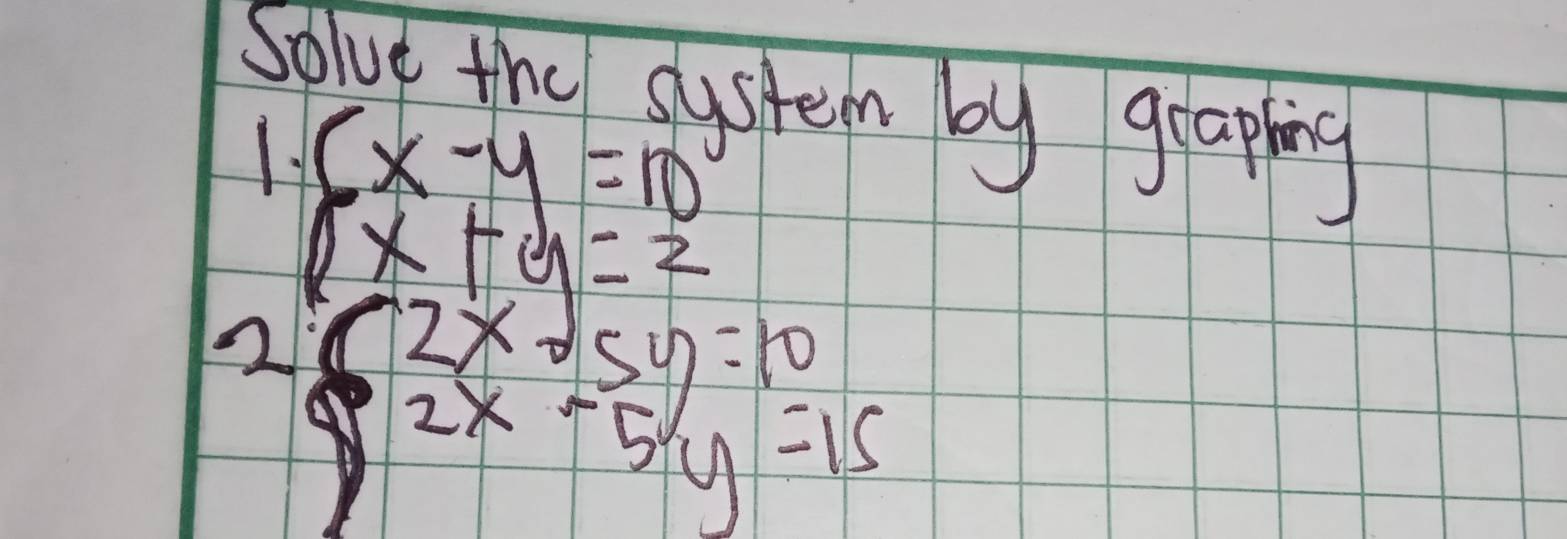 Solve the system by graphing
1. { x - y = 10
x + y = 2
2. { 2x - 5y = 10
2x - 5y = 15